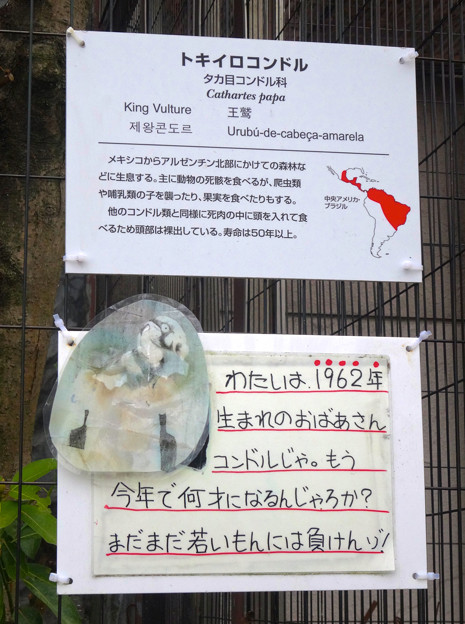 トキイロコンドル
タカ目コンドル科
Cathartes papa
King Vulture 王鷲
제왕콘도르 Urubú-de-cabeça-amarela
メキシコからアルゼンチン北部にかけての森林な
どに生息する。主に動物の死骸を食べるが、爬虫類
や哺乳類の子を襲ったり、果実を食べたりもする。
他のコンドル類と同様に死肉の中に頭を入れて食
べるため頭部は裸出している。寿命は50年以上。
中央アメリカ・
ブラジル
わたしは、1962年
生まれのおばあさん
コンドルじゃ。もう
今年で何才になるんじゃろか?
まだまだ若いもんには負けんゾ!